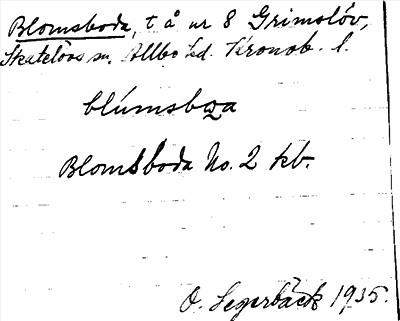 Blomsboda, t å nr 8 Grimslöv,
Skatelövs sn, Allbo hd. Kronob. l.
blúmsbωa
Blomsboda No. 2 kb.
O. Segerbäck 1935.